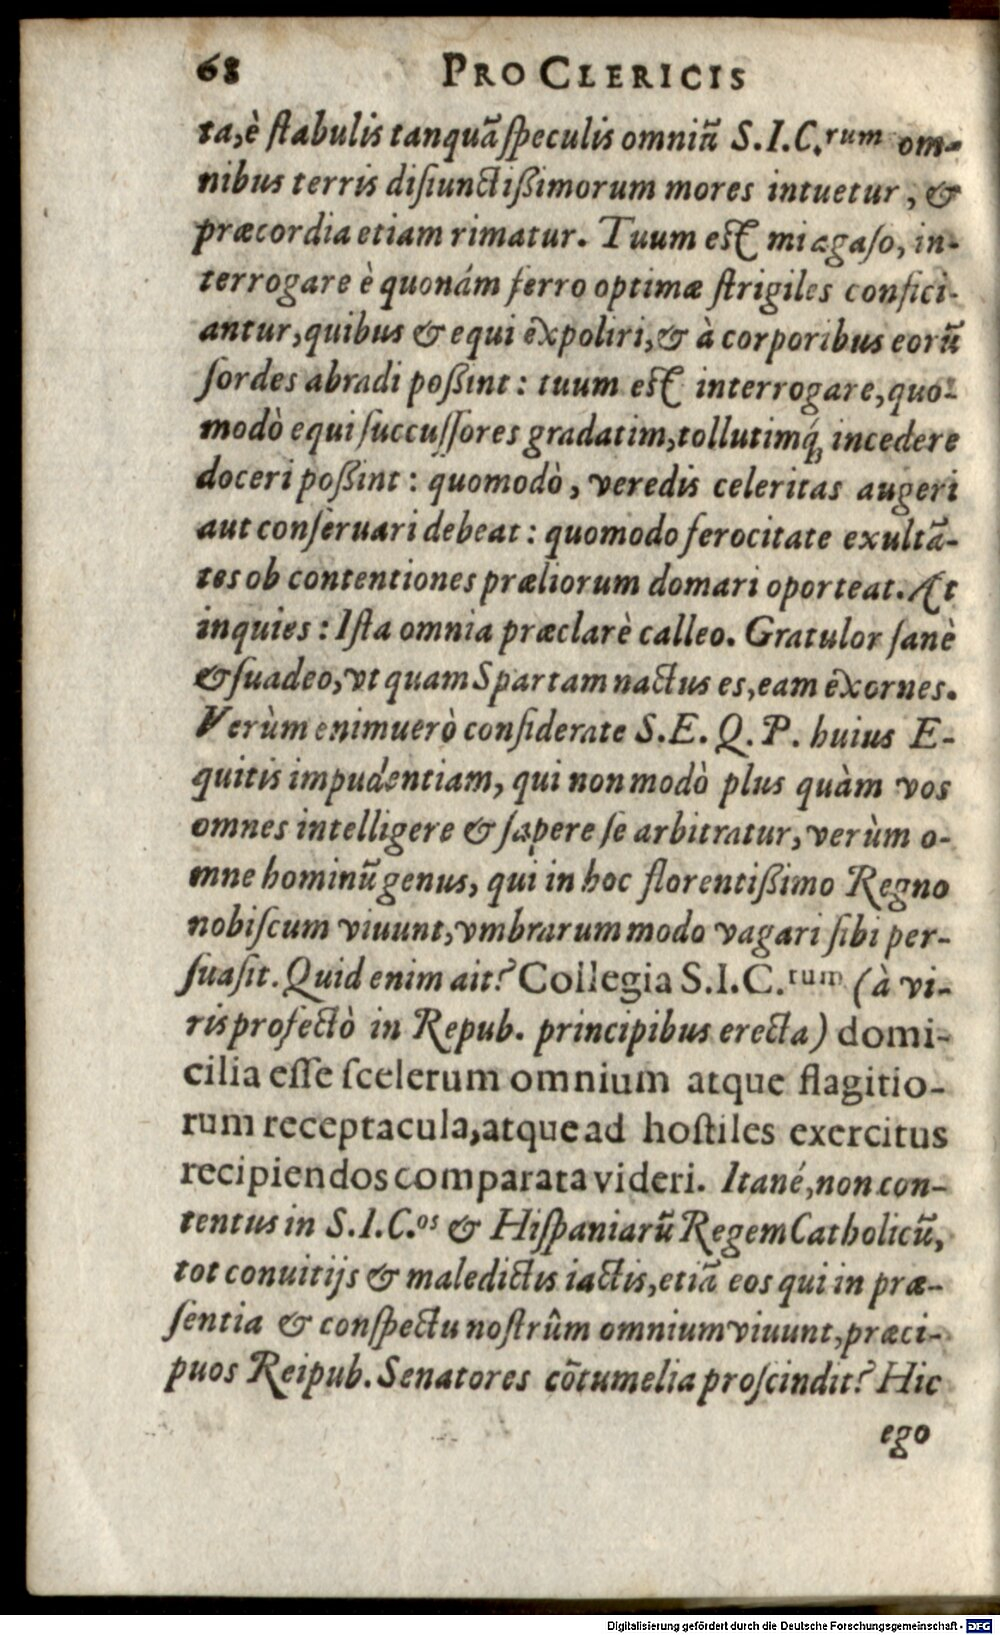 68 PRO CLERICIS
ta, è ſtabulis tanquā ſpeculis omniū S. I. C.rum om-
nibus terris diſiunctißimorum mores intuetur, &
præcordia etiam rimatur. Tuum eſt mi agaſo, in-
terrogare è quonám ferro optimæ ſtrigiles confici-
antur, quibus & equi expoliri, & à corporibus eorū
ſordes abradi poßint: tuum eſt interrogare, quo-
modò equi ſuccuſſores gradatim, tollutimq́; incedere
doceri poßint: quomodò, veredis celeritas augeri
aut conſeruari debeat: quomodo ferocitate exultā-
tes ob contentiones præliorum domari oporteat. At
inquies: Iſta omnia præclarè calleo. Gratulor ſanè
& ſuadeo, vt quam Spartam nactus es, eam exornes.
Verùm enimuerò conſiderate S. E. Q. P. huius E-
quitis impudentiam, qui non modò plus quàm vos
omnes intelligere & ſapere ſe arbitratur, verùm o-
mne hominū genus, qui in hoc florentißimo Regno
nobiſcum viuunt, vmbrarum modo vagari ſibi per-
ſuaſit. Quid enim ait? Collegia S. I. C.rum (à vi-
ris profectò in Repub. principibus erecta) domi-
cilia eſſe ſcelerum omnium atque flagitio-
rum receptacula, atque ad hoſtiles exercitus
recipiendos comparata videri. Itané, non con-
tentus in S. I. C.os & Hiſpaniarū Regem Catholicū,
tot conuitijs & maledictis iactis, etiā eos qui in præ-
ſentia & conſpectu noſtrûm omnium viuunt, præci-
puos Reipub. Senatores cōtumelia proſcindit? Hic
ego
Digitalisierung gefördert durch die Deutsche Forschungsgemeinschaft - DFG